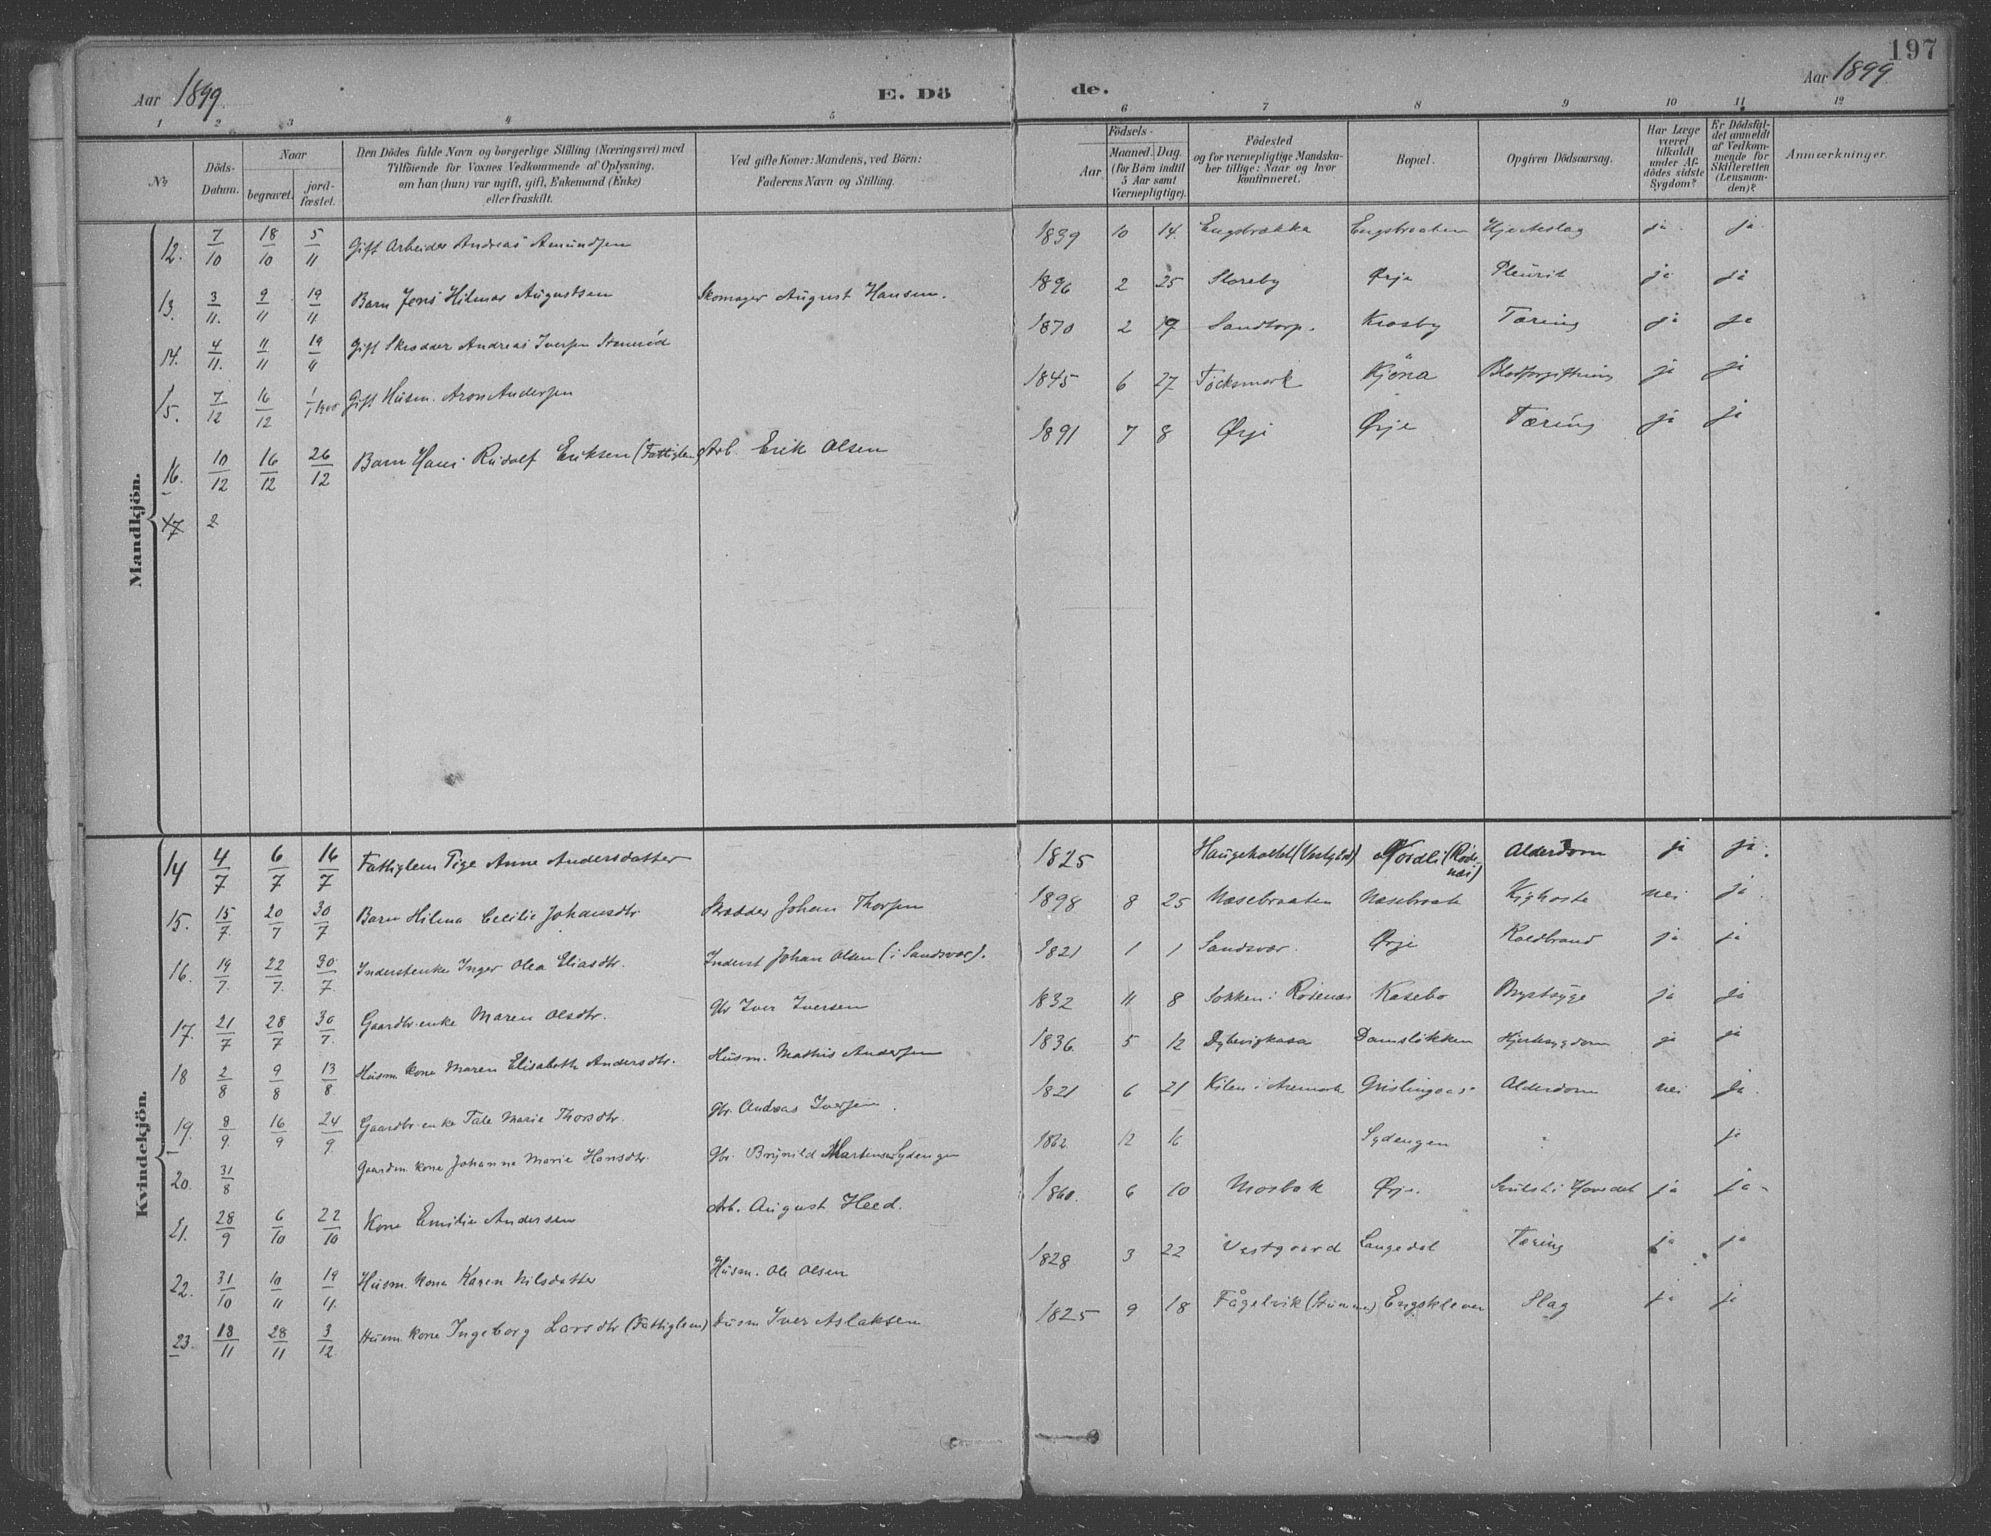 197
Aar 1899. E. Dö de. Aar 1899.
1 2 3 4 5 6 7 8 9 10 11 12
No. Döds-Datum. Naar begravet. jord-fæstet. Den Dödes fulde Navn og borgerlige Stilling (Næringsvei) med Tilföiende for Voxnes Vedkommende af Oplysning, om han (hun) var ugift, gift, Enkemand (Enke) eller fraskilt. Ved gifte Koner: Mandens, ved Börn: Faderens Navn og Stilling. Födsels- Aar. Maaned. Dag. (for Börn indtil 5 Aar samt Værnepligtige). Födested og for værnepligtige Mandskaber tillige: Naar og hvor konfirmeret. Bopæl. Opgiven Dödsaarsag. Har Læge været tilkaldt under Afdödes sidste Sygdom? Er Dödsfaldet anmeldt af Vedkommende for Skifteretten (Lensmanden)? Anmærkninger.
Mandkjön.
12. 7/10 18/10 5/11 Gift Arbeider Andreas Amundsen 1839 10 14. Engsbrække Engsbraaten Hjerteslag ja ja
13. 3/11. 9/11 19/11 Barn Jens Hilmar Augustsen Skomager August Hansen. 1896 2 25 Storeby Ørje Pleurit ja ja
14. 4/11. 11/11 19/11 Gift Skrædder Andreas Iversen Stenrød 1870 2 19 Sandtorp. Krosby Tæring ja ja
15. 7/12 16/12 1/1 1900 Gift Husm. Aron Andersen 1845 6 27 Töcksmark Kjöna Blodforgiftning ja ja
16. 10/12 16/12 26/12 Barn Hans Rudolf Eriksen (Fattiglem) Arb. Erik Olsen 1891 7 8 Ørje Ørje Tæring ja ja
17 2
Kvindekjön.
14 4/7 6/7 16/7 Fattiglem Pige Anne Andersdatter 1825 Nordli (Rödenæs) Alderdom ja ja.
15. 15/7. 20/7 30/7 Barn Hilma Cecilie Johansdtr. Skrædder Johan Thorsen 1898 8 25 Næsebraaten Næsebraat Kighoste nei ja
16. 19/7. 22/7. 30/7. Inderstenke Inger Olea Eliasdtr. Inderst Johan Olsen (i Sandsvær). 1821 1 1 Sandsvær. Ørje Koldbrand ja ja
17. 21/7 28/7 30/7. Gaardbr. enke Maren Olsdtr. Gbr Iver Iversen 1832 11 8 Sokken i Rödenæs Kasebo Brystsyge ja ja
18 2/8 9/8 13/8 Husm. kone Maren Elisabeth Andersdtr. Husm. Mathis Andersen 1836. 5 12 Dybevigkasa Damsløkken Hjertesygdom ja ja
19. 8/9. 16/9 24/9. Gaardbr. enke Tale Marie Thorsdtr. Gbr. Andreas Iversen. 1821 6 21 Kilen i Aremark Alderdom nei ja.
20. 31/8 Gaardm. kone Johanne Marie Hansdtr. Gbr. Brynild Martensen Sydengen 1862 12 16 Sydengen ja
21. 28/9 6/10 22/10 Kone Emilie Andersen Arb. August Heed. 1860. 6 10 Mosbæk Ørje. Hovedet ja ja
22. 31/10 10/11 19/11. Husm. kone Karen Nilsdatter Husm. Ole Olsen 1828 3 22 Vestgaard Langedal Tæring ja ja
23. 18/11 28/11 3/12 Husm. kone Ingeborg Larsdtr (Fattiglem) Husm Iver Aslaksen 1825 9 18 Fågelvik Engskleven Slag ja ja